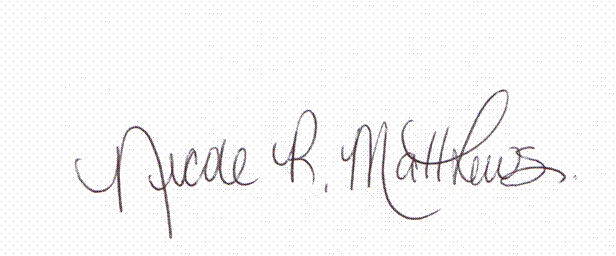 Nicole R. Matthews.